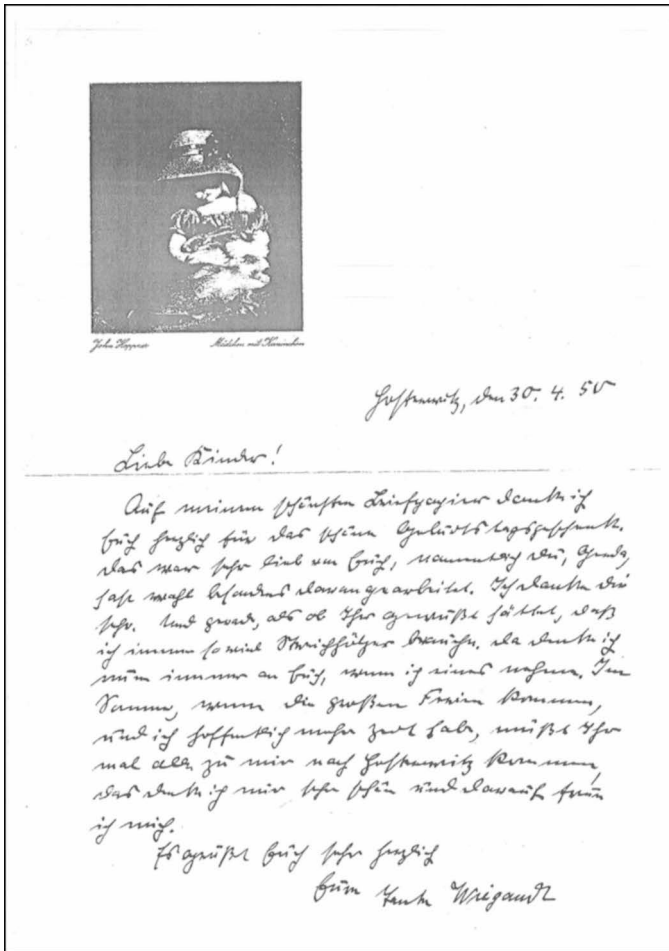 John Hoppner Mädchen mit Kaninchen
Hosterwitz, den 30. 4. 50
Liebe Kinder!
Auf meinem schönsten Briefpapier danke ich
Euch herzlich für das schöne Geburtstagsgeschenk.
Das war sehr lieb von Euch, namentlich Du, Gerda,
hast wohl besonders daran gearbeitet. Ich danke Dir
sehr. Und gerade, als ob Ihr gewußt hättet, daß
ich immer so viel Streichhölzer brauche. Da denke ich
nun immer an Euch, wenn ich eines nehme. Im
Sommer, wenn die großen Ferien kommen,
und ich hoffentlich mehr Zeit habe, müßt Ihr
mal alle zu mir nach Hosterwitz kommen,
das denke ich mir sehr schön und darauf freue
ich mich.
Es grüßt Euch sehr herzlich
Eure Tante Wiegandt